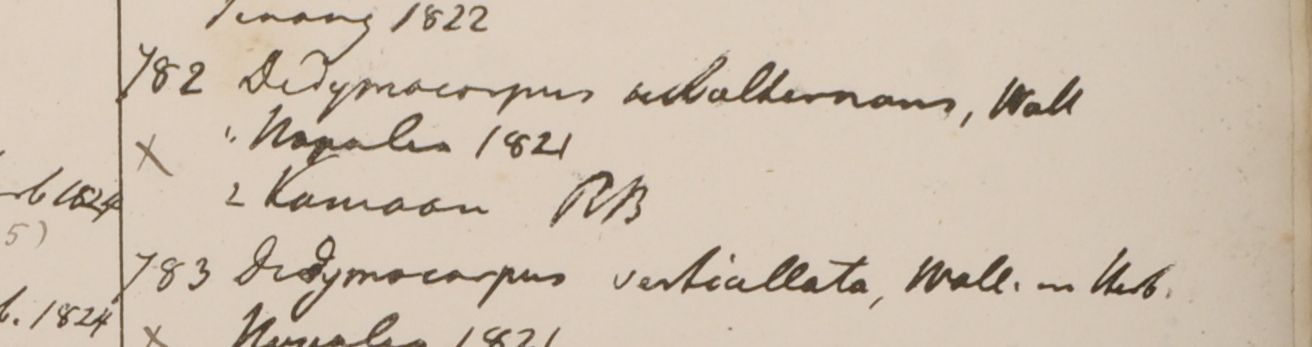 Penang 1822
782 Didymocarpus subalternans, Wall
1. Napalia 1821
X
2 Kamaon RB
b 1824
5)
783 Didymocarpus verticillata, Wall. in Herb.
b. 1824
X Napalia 1821